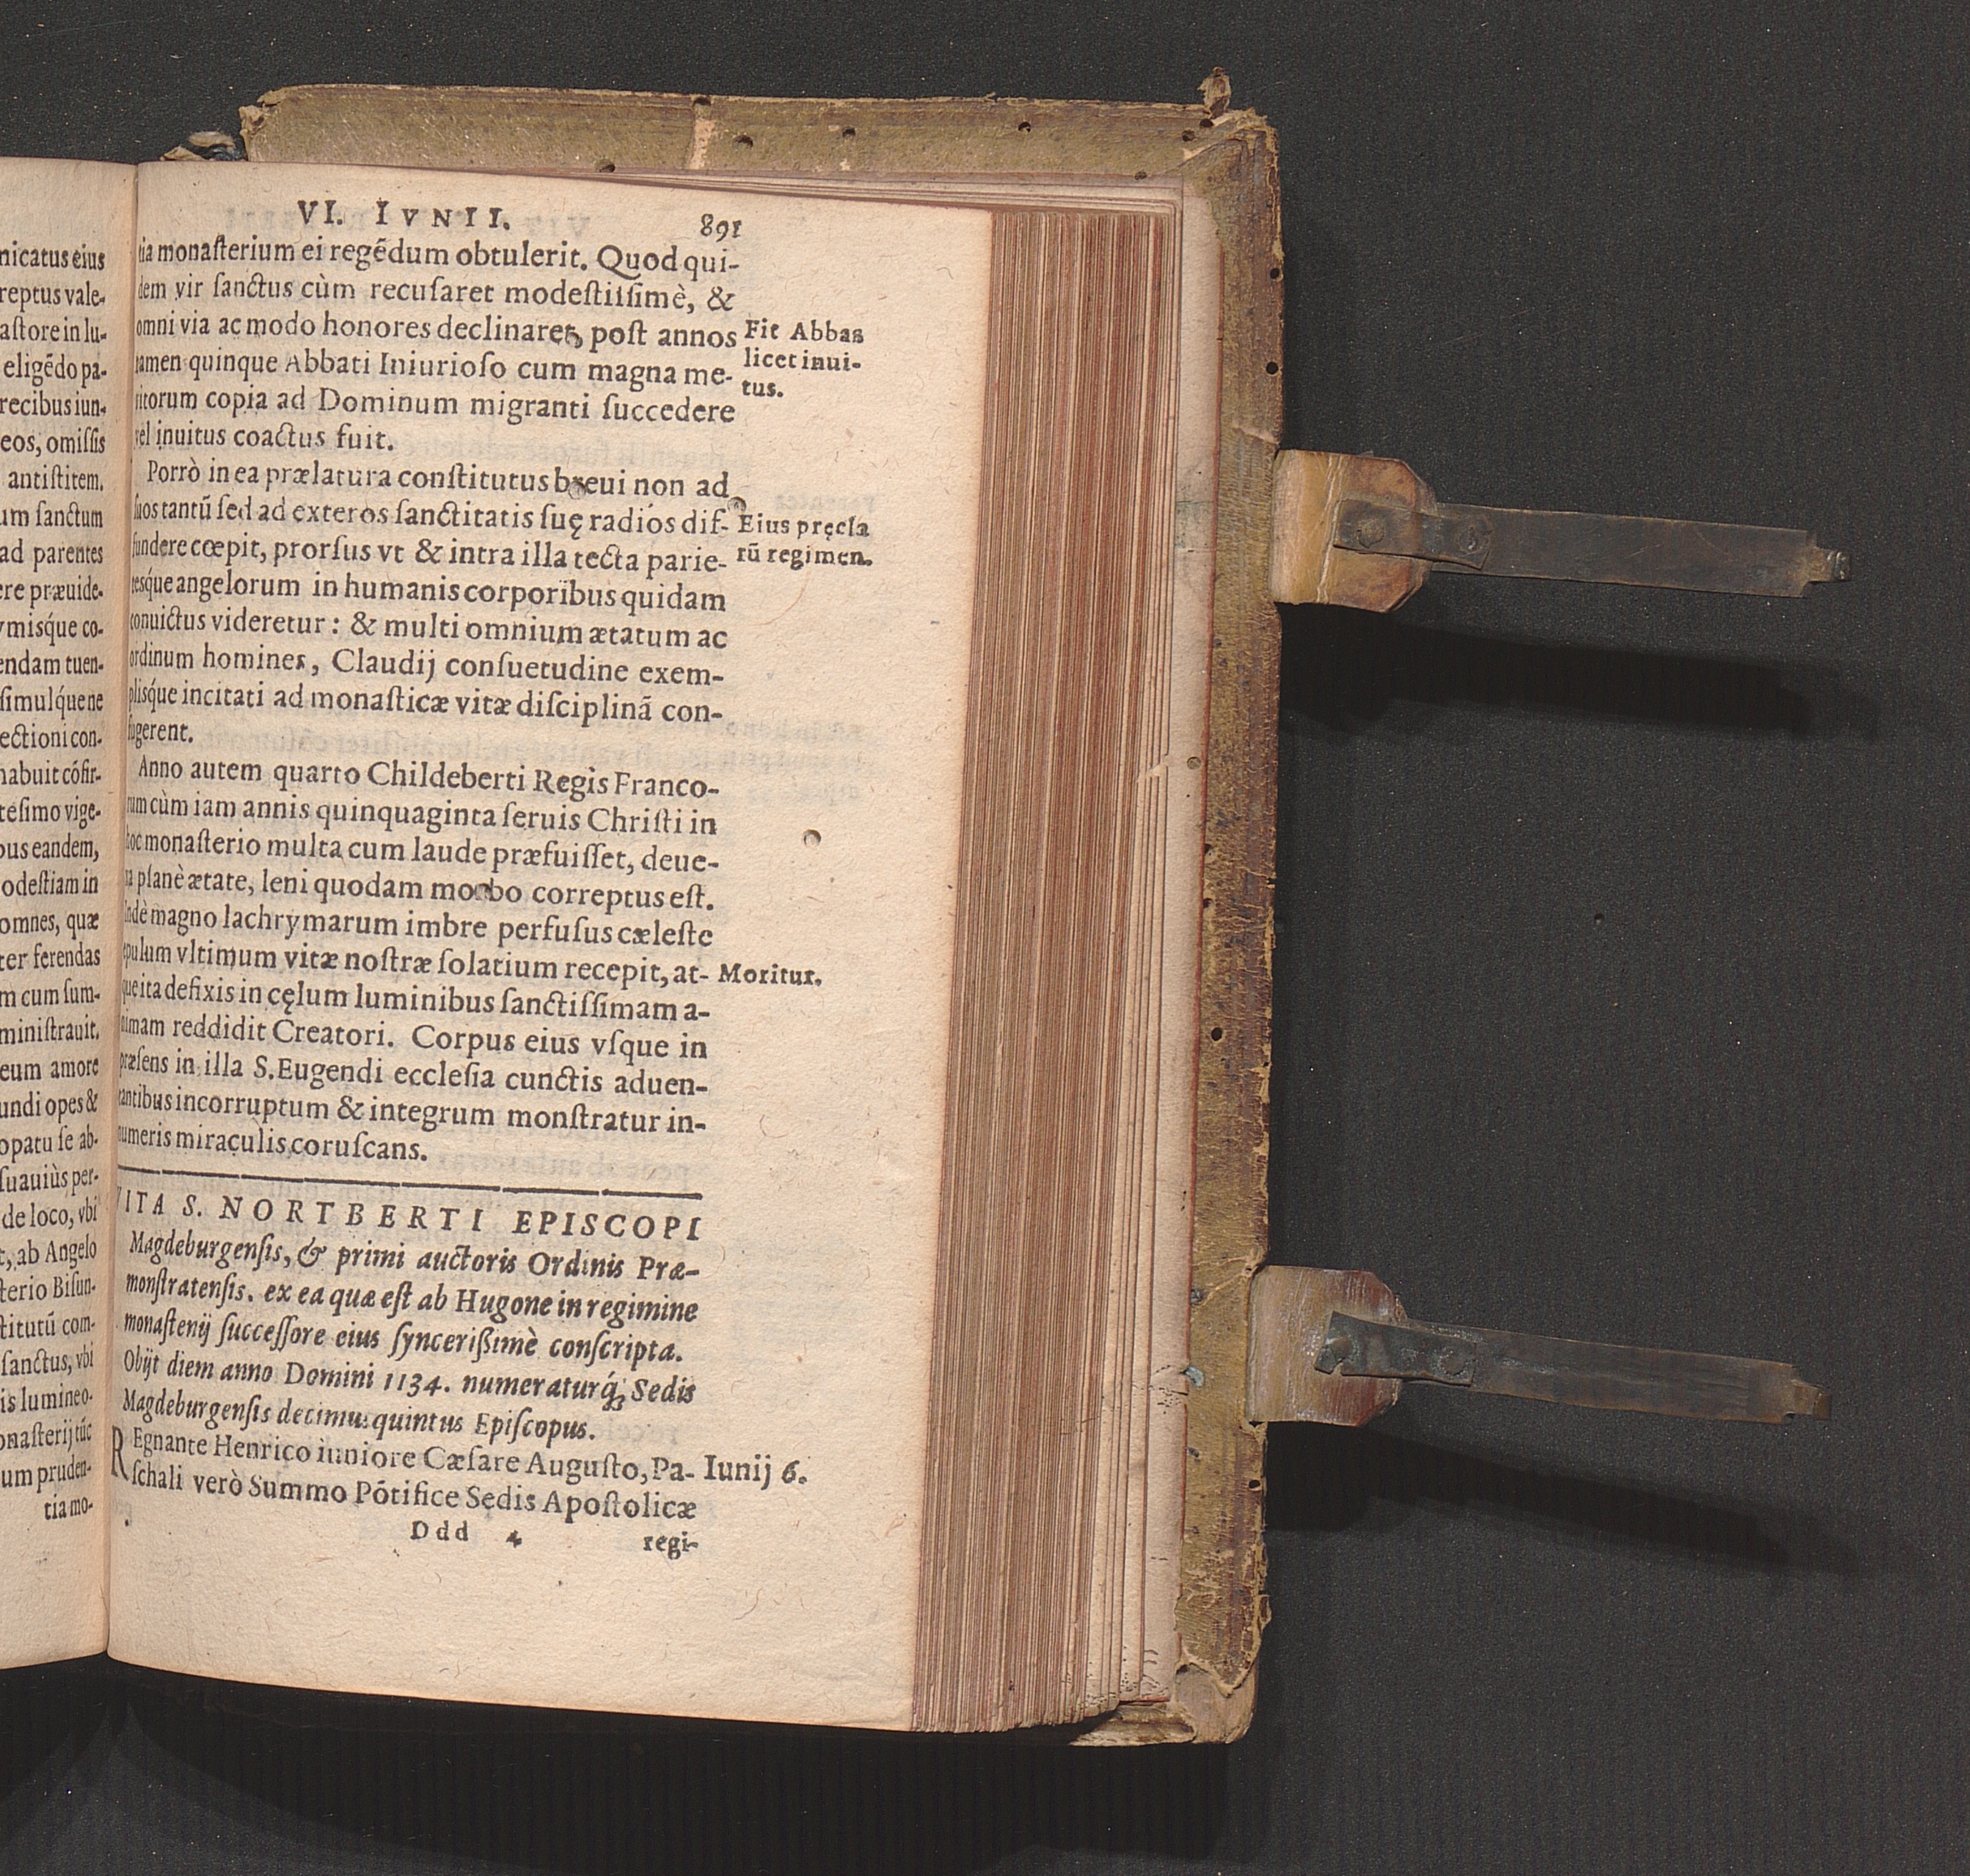 nicatus eius
reptus vale-
astore in lu-
eligēdo pa-
recibus iun-
eos, omiſſis
antiſtitem.
um ſanctum
ad parentes
ere præuide-
ymiſq́ue co-
endam tuen-
ſimulq́ue ne
ectioni con-
habuit cōfir-
teſimo vige-
ous eandem,
odeſtiam in
omnes, quæ
ter ferendas
m cum ſum-
miniſtrauit.
eum amore
undi opes &
opatu ſe ab-
ſuauiùs per-
de loco, vbi
t, ab Angelo
ſterio Biſun-
ſtitutū com-
ſanctus, vbi
is lumine o-
onaſterij tūc
um pruden-
tia mo-
VI. IVNII. 891
tia monaſterium ei regēdum obtulerit. Quod qui-
dem vir ſanctus cùm recuſaret modeſtiſſimè, &
omni via ac modo honores declinaret, poſt annos
tamen quinque Abbati Iniurioſo cum magna me-
ritorum copia ad Dominum migranti ſuccedere
vel inuitus coactus fuit.
Fit Abbas
licet inui-
tus.
Porrò in ea prælatura conſtitutus breui non ad
ſuos tantū ſed ad exteros ſanctitatis ſuę radios dif-
fundere cœpit, prorſus vt & intra illa tecta parie-
teſq́ue angelorum in humanis corporibus quidam
conuictus videretur: & multi omnium ætatum ac
ordinum homines, Claudij conſuetudine exem-
pliſq́ue incitati ad monaſticæ vitæ diſciplinā con-
fugerent.
Eius pręcla
rū regimen.
Anno autem quarto Childeberti Regis Franco-
rum cùm iam annis quinquaginta ſeruis Chriſti in
hoc monaſterio multa cum laude præfuiſſet, deue-
xa planè ætate, leni quodam morbo correptus eſt.
Indè magno lachrymarum imbre perfuſus cæleſte
epulum vltimum vitæ noſtræ ſolatium recepit, at-
que ita defixis in cęlum luminibus ſanctiſſimam a-
nimam reddidit Creatori. Corpus eius vſque in
præſens in illa S. Eugendi eccleſia cunctis aduen-
tantibus incorruptum & integrum monſtratur in-
numeris miraculis coruſcans.
Moritur.
VITA S. NORTBERTI EPISCOPI
Magdeburgenſis, & primi auctoris Ordinis Præ-
monſtratenſis. ex ea quæ eſt ab Hugone in regimine
monaſterij ſucceſſore eius ſynceriſsimè conſcripta.
Obijt diem anno Domini 1134. numeraturq́; Sedis
Magdeburgenſis decimus quintus Epiſcopus.
REgnante Henrico iuniore Cæſare Auguſto, Pa-
ſchali verò Summo Pōtifice Sedis Apoſtolicæ
Iunij 6.
Ddd 4 regi-